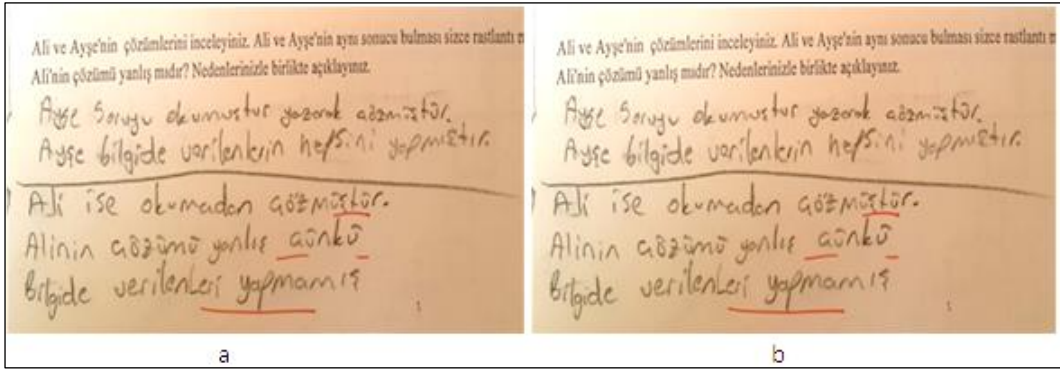 Ali ve Ayşe'nin çözümlerini inceleyiniz. Ali ve Ayşe'nin aynı sonucu bulması sizce rastlantı m
Ali'nin çözümü yanlış mıdır? Nedenlerinizle birlikte açıklayınız.
Ayşe Soruyu okumuştur yazarak çözmüştür.
Ayşe bilgide verilenlerin hepsini yapmıştır.
Ali ise okumadan çözmüştür.
Alinin çözümü yanlış çünkü
Bilgide verilenleri yapmamış
a
Ali ve Ayşe'nin çözümlerini inceleyiniz. Ali ve Ayşe'nin aynı sonucu bulması sizce rastlantı m
Ali'nin çözümü yanlış mıdır? Nedenlerinizle birlikte açıklayınız.
Ayşe Soruyu okumuştur yazarak çözmüştür.
Ayşe bilgide verilenlerin hepsini yapmıştır.
Ali ise okumadan çözmüştür.
Alinin çözümü yanlış çünkü
Bilgide verilenleri yapmamış
b